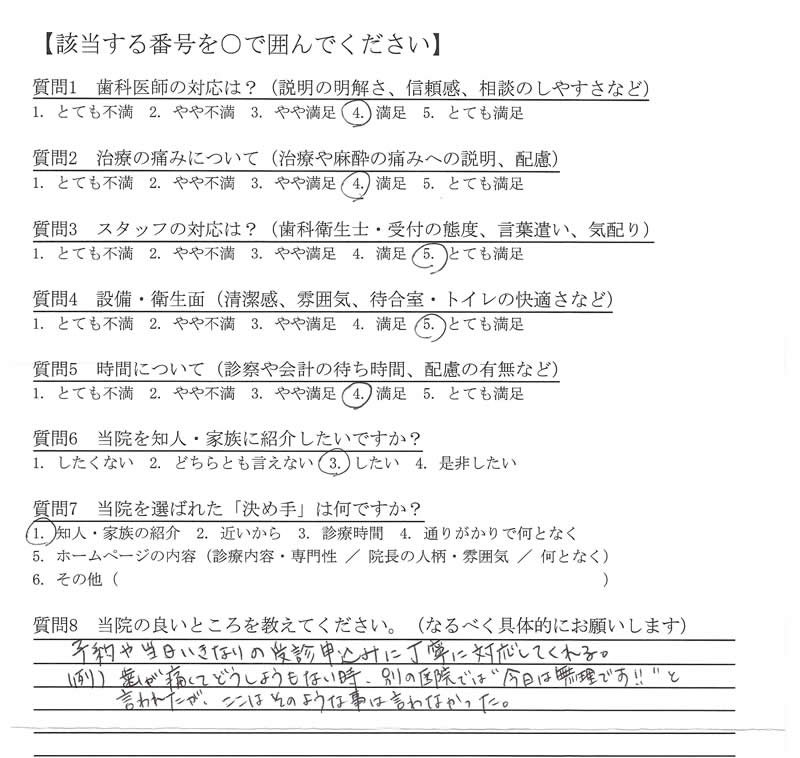 【該当する番号を〇で囲んでください】
質問1　歯科医師の対応は？（説明の明解さ、信頼感、相談のしやすさなど）
1. とても不満　2. やや不満　3. やや満足　4. 満足　5. とても満足
質問2　治療の痛みについて（治療や麻酔の痛みへの説明、配慮）
1. とても不満　2. やや不満　3. やや満足　4. 満足　5. とても満足
質問3　スタッフの対応は？（歯科衛生士・受付の態度、言葉遣い、気配り）
1. とても不満　2. やや不満　3. やや満足　4. 満足　5. とても満足
質問4　設備・衛生面（清潔感、雰囲気、待合室・トイレの快適さなど）
1. とても不満　2. やや不満　3. やや満足　4. 満足　5. とても満足
質問5　時間について（診察や会計の待ち時間、配慮の有無など）
1. とても不満　2. やや不満　3. やや満足　4. 満足　5. とても満足
質問6　当院を知人・家族に紹介したいですか？
1. したくない　2. どちらとも言えない　3. したい　4. 是非したい
質問7　当院を選ばれた「決め手」は何ですか？
1. 知人・家族の紹介　2. 近いから　3. 診療時間　4. 通りがかりで何となく
5. ホームページの内容（診療内容・専門性 ／ 院長の人柄・雰囲気 ／ 何となく）
6. その他（　　　　　　　　　　　　　　　　　　　　　　　　　　　　　　）
質問8　当院の良いところを教えてください。（なるべく具体的にお願いします）
予約や当日いきなりの受診申込みに丁寧に対応してくれる。
（例）歯が痛くてどうしようもない時、別の医院では“今日は無理です!!”と
言われたが、ここはそのような事は言わなかった。